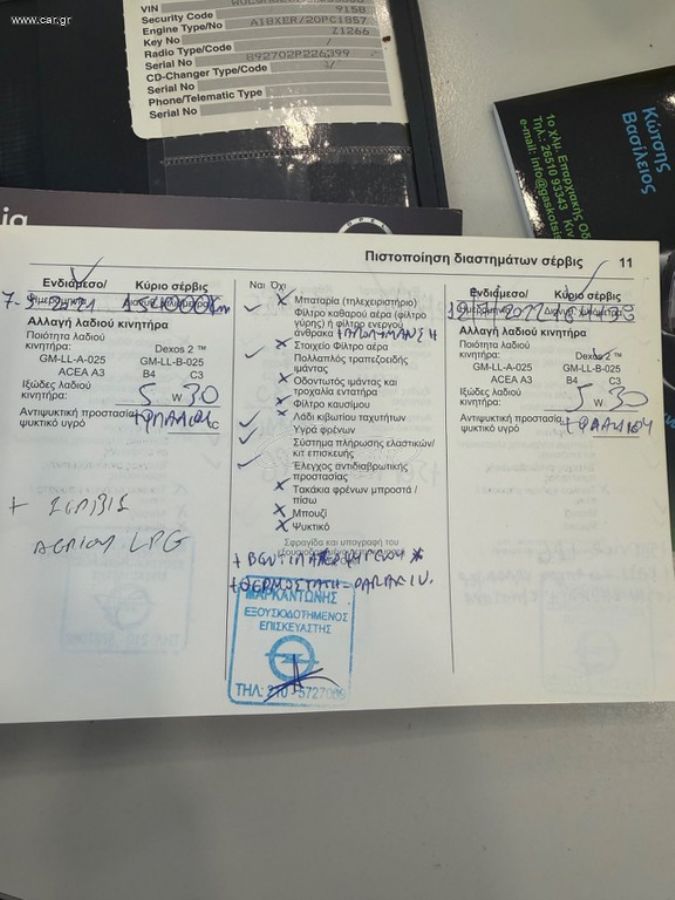 www.car.gr
VIN
Security Code 9158
Engine Type/No A18XER/20PC1857
Key No Z1266
Radio Type/Code /
Serial No
CD-Changer Type/Code /
Serial No
Phone/Telematic Type
Serial No
Κώτσης
Βασίλειος
1ο χλμ. Επαρχιακής Οδ
Τηλ.: 26510 93343 Κιν
e-mail: info@gaskotsis
ia
OPEL
Πιστοποίηση διαστημάτων σέρβις 11
Ενδιάμεσο/ Κύριο σέρβις
Αλλαγή λαδιού κινητήρα
Ποιότητα λαδιού
κινητήρα: Dexos 2 ™
GM-LL-A-025 GM-LL-B-025
ACEA A3 B4 C3
Ιξώδες λαδιού
κινητήρα: 5 W 30
Αντιψυκτική προστασία,
ψυκτικό υγρό °C
+ ΣΕΡΒΙΣ
ΑΕΡΙΟΥ LPG
Ναι Όχι
Μπαταρία (τηλεχειριστήριο)
Φίλτρο καθαρού αέρα (φίλτρο
γύρης) ή φίλτρο ενεργού
άνθρακα
Στοιχείο Φίλτρο αέρα
Πολλαπλός τραπεζοειδής
ιμάντας
Οδοντωτός ιμάντας και
τροχαλία εντατήρα
Φίλτρο καυσίμου
Λάδι κιβωτίου ταχυτήτων
Υγρά φρένων
Σύστημα πλήρωσης ελαστικών/
κιτ επισκευής
Έλεγχος αντιδιαβρωτικής
προστασίας
Τακάκια φρένων μπροστά /
πίσω
Μπουζί
Ψυκτικό
Σφραγίδα και υπογραφή του
ΜΑΡΚΑΝΤΩΝΗΣ
ΕΞΟΥΣΙΟΔΟΤΗΜΕΝΟΣ
ΕΠΙΣΚΕΥΑΣΤΗΣ
ΤΗΛ: 210
Ενδιάμεσο/ Κύριο σέρβις
Αλλαγή λαδιού κινητήρα
Ποιότητα λαδιού
κινητήρα: Dexos 2 ™
GM-LL-A-025 GM-LL-B-025
ACEA A3 B4 C3
Ιξώδες λαδιού
κινητήρα: 5 W 30
Αντιψυκτική προστασία,
ψυκτικό υγρό